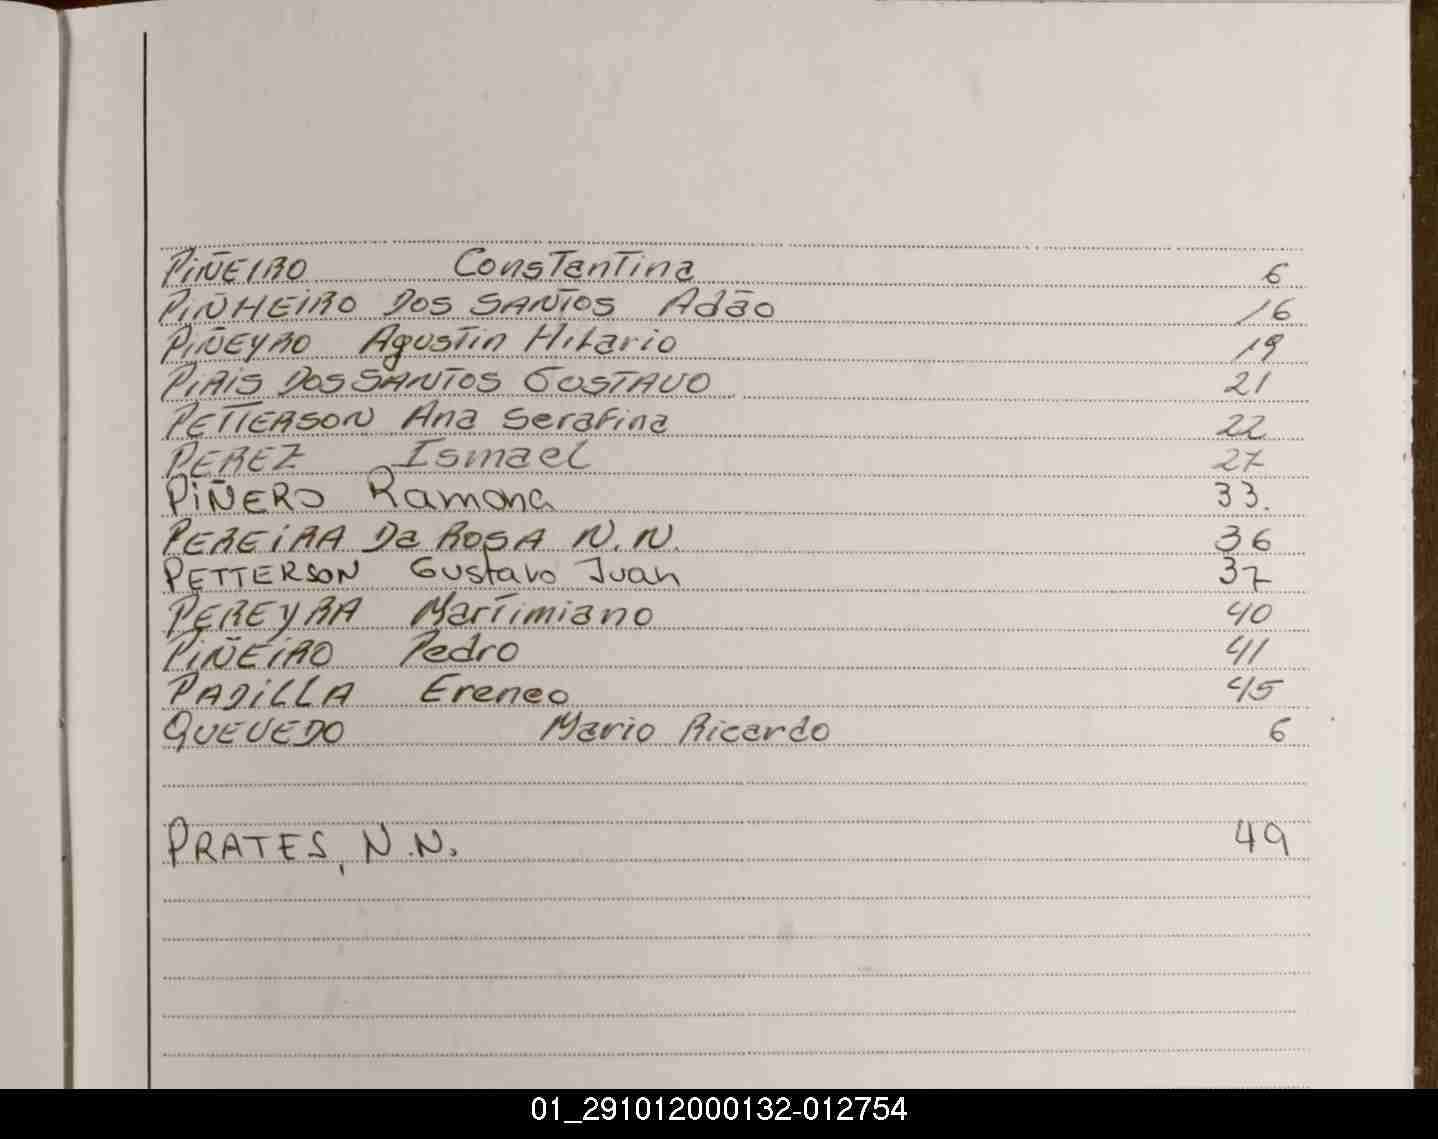 PIÑEIRO Constantina 6
PIÑHEIRO DOS SANTOS Adão 16
PIÑEYRO Agustin Hilario 19
PIRIS DOS SANTOS GUSTAVO 21
PETTERSON Ana Serafina 22
PEREZ Ismael 27
PIÑERO Ramona 33.
PEREIRA Da ROSA N.N. 36
PETTERSON Gustavo Juan 37
PEREYRA Martimiano 40
PIÑEIRO Pedro 41
PADILLA Ereneo 45
QUEVEDO Mario Ricardo 6
PRATES, N.N. 49
01_291012000132-012754